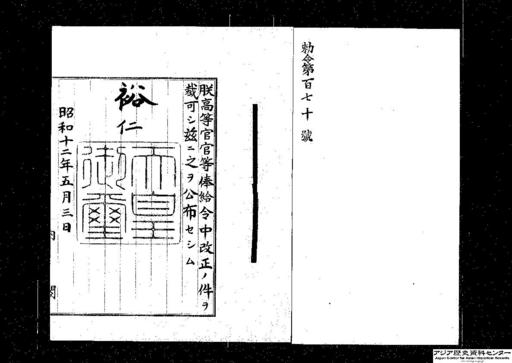 勅令第百七十號
朕高等官官等俸給令中改正ノ件ヲ
裁可シ茲ニ之ヲ公布セシム
裕仁
天皇御璽
昭和十二年五月三日
内閣
アジア歴史資料センター
Japan Center for Asian Historical Records